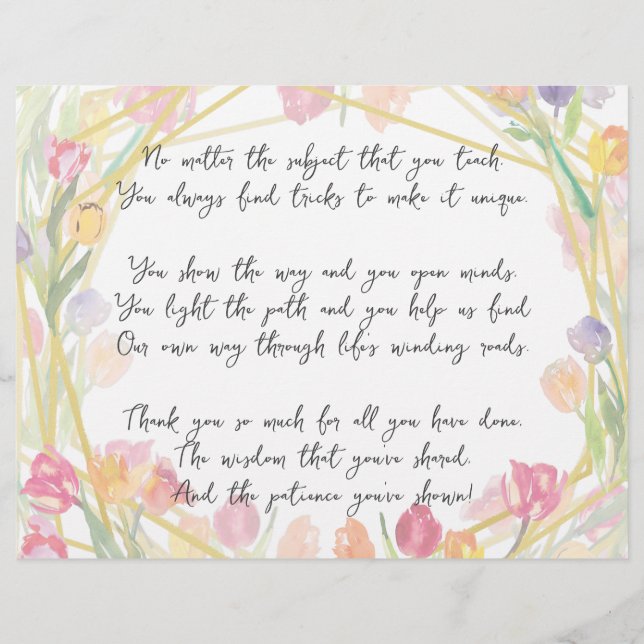 No matter the subject that you teach.
You always find tricks to make it unique.
You show the way and you open minds.
You light the path and you help us find
Our own way through life's winding roads.
Thank you so much for all you have done.
The wisdom that you've shared.
And the patience you've shown!